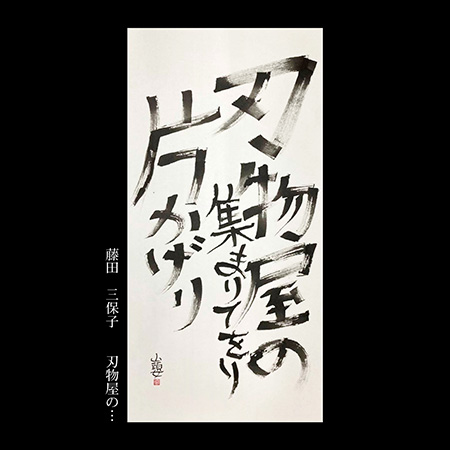 刃物屋の
集まりてをり
片かげり
山頭女
藤田　三保子　　刃物屋の…